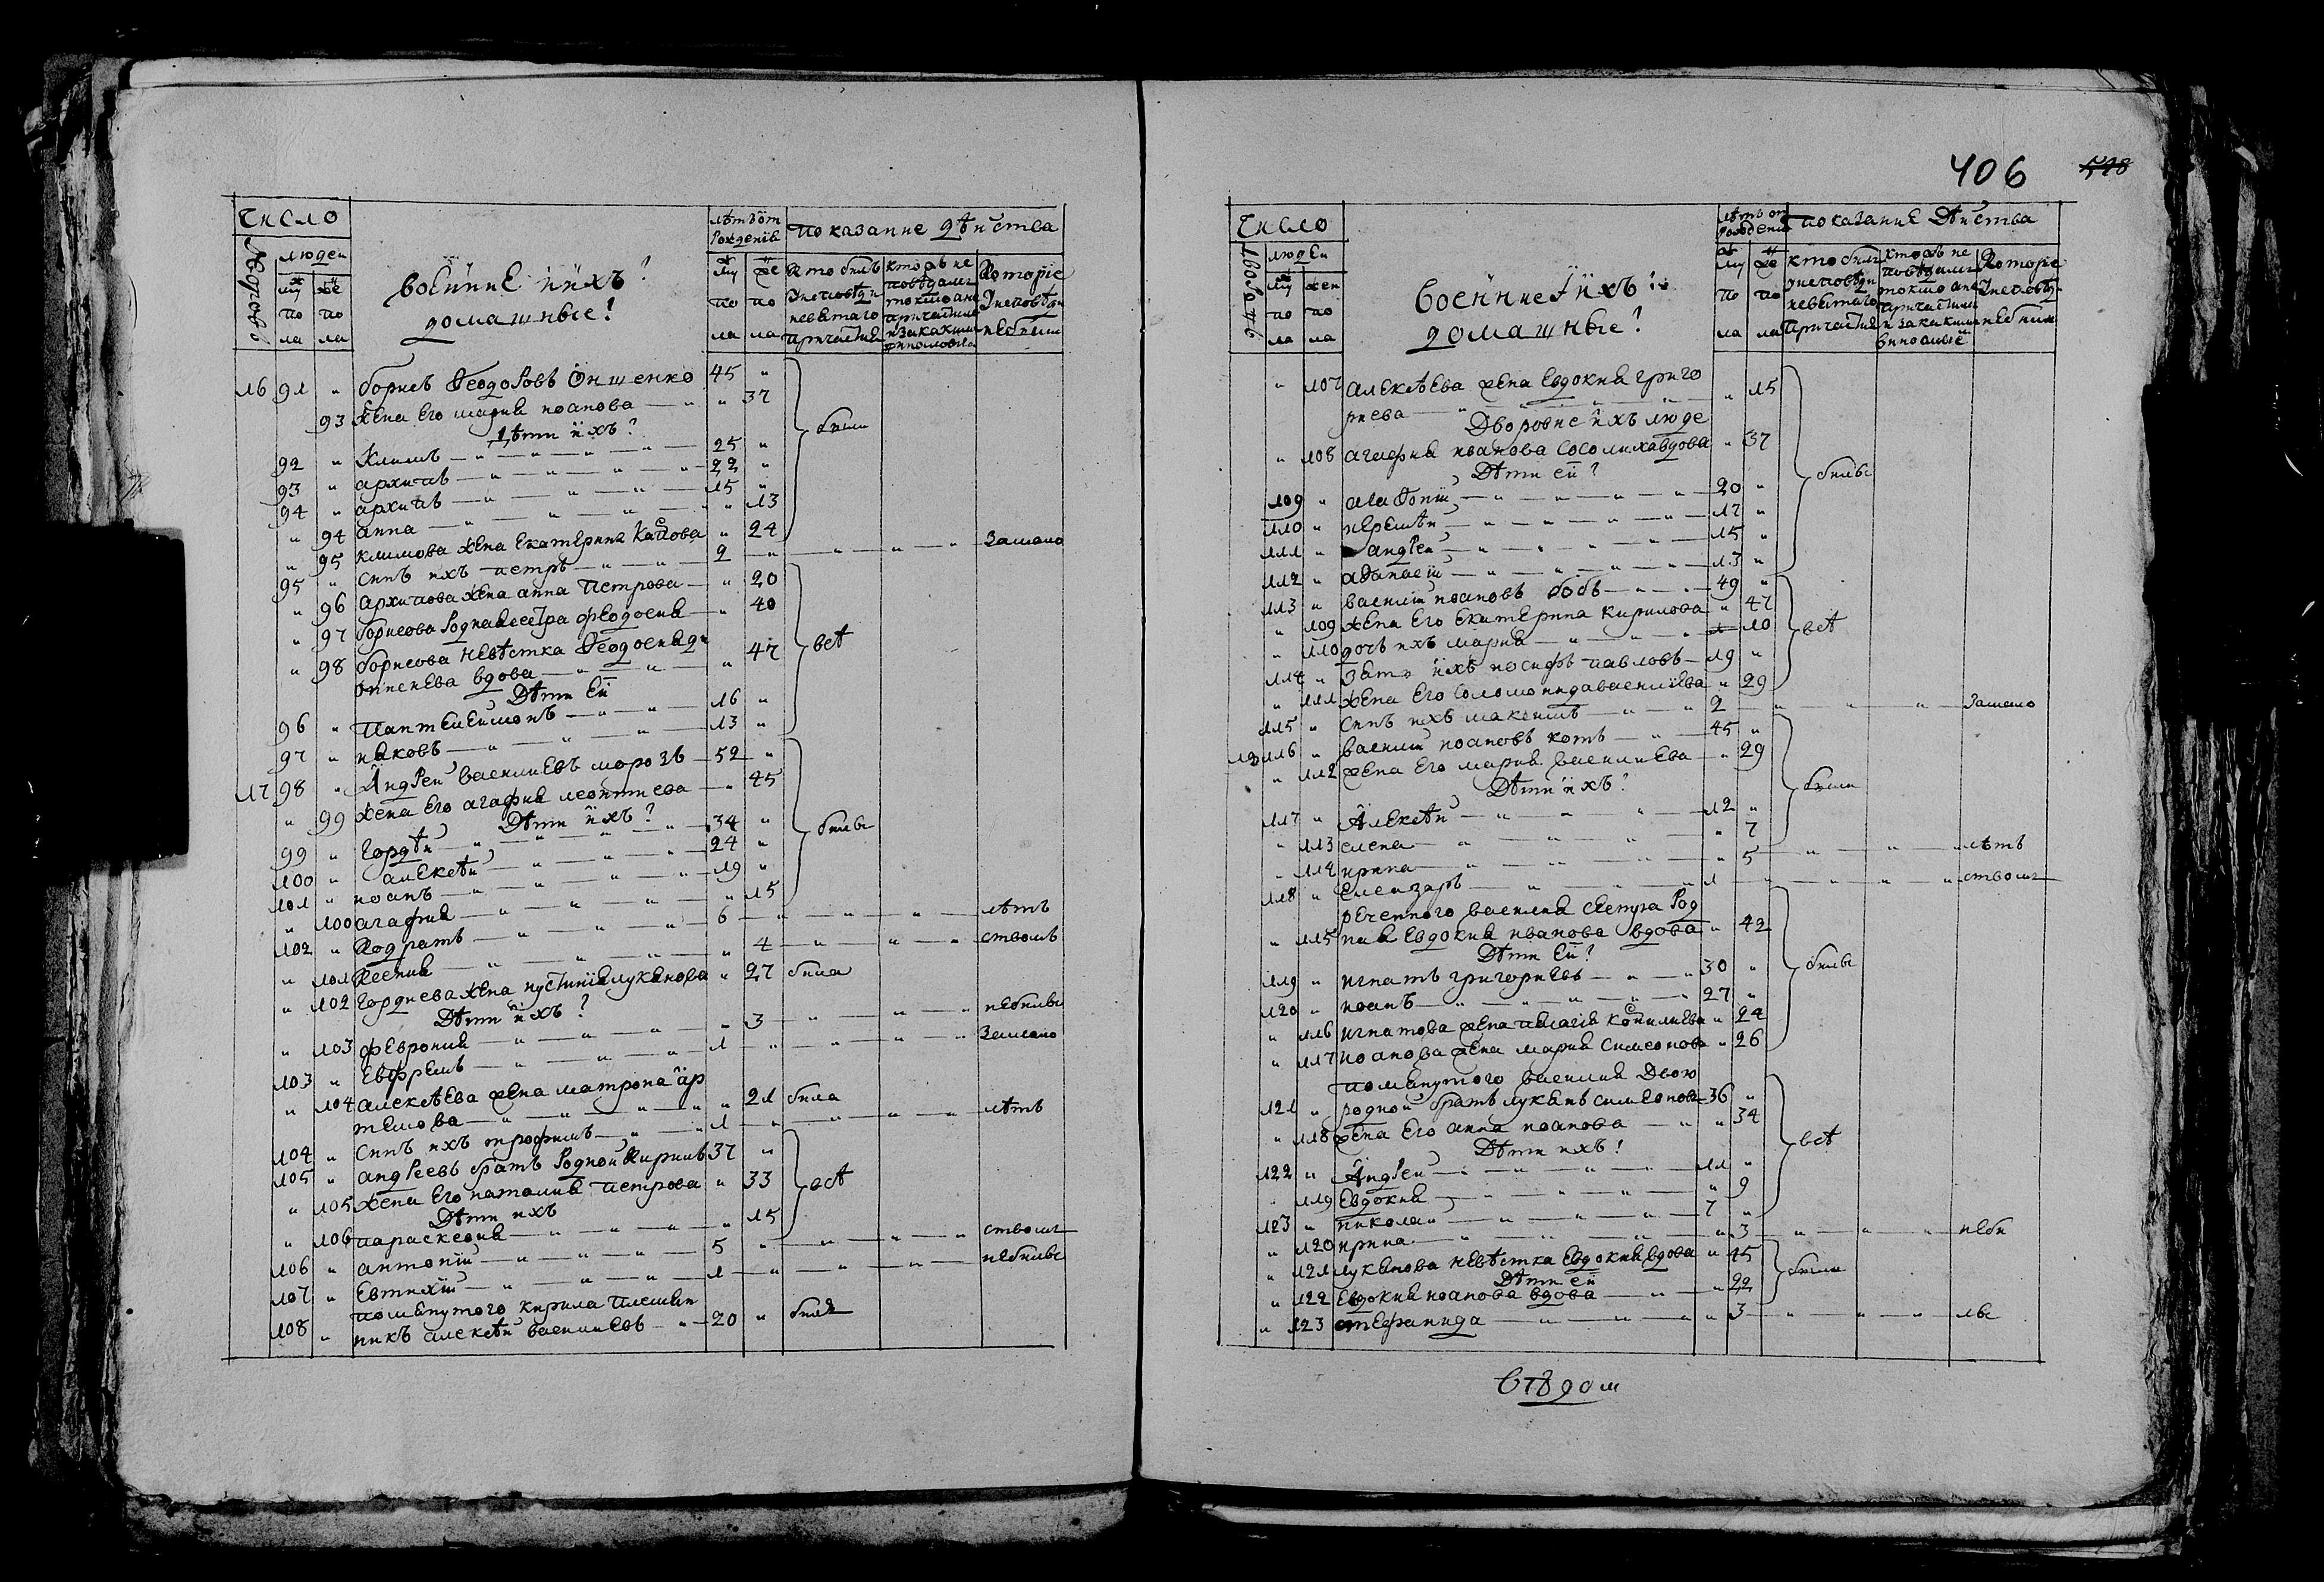 Число
Дворовъ
людеи
му по ла
же по ла
военние ииxъ
домашные!
лѣтъ от рожденїя
му по ла
же по ла
показание дѣиства
Кто билъ у исповѣди и святаго причастия
Которїе у исповѣди не били
16 91 " борисъ Ѳеодоровъ Онишенко 45 "
93 жена Его мария иоанова " 37
дѣти ихъ?
92 " Климъ 25 "
93 " архипъ 22 "
94 " архипъ 15 "
били
" 94 анна " 13
" 95 климова жена Екатерина " 24
95 " синъ ихъ петръ 2 " замало
" 96 архипова жена анна петрова " 20
" 97 борисова родная сестра феодосия " 40
" 98 борисова невѣстка Ѳеодосия ди
онисиева вдова " 47
всѣ
Дѣти Ей
96 " Пантелеимонъ 16 "
97 " иаковъ 13 "
17 98 " Андреи василиевъ морозъ 52 "
" 99 жена Его агафия леонтиева " 45
Дѣти ихъ?
99 " Гордѣи 34 "
били
100 " алексѣи 24 "
101 " иоанъ 19 "
" 100 агафия " 15
102 " Кодратъ 6 лѣтъ
" 101 Ксения " 4 ствомъ
" 102 Гордиева жена иустинїя лукянова " 27 била
Дѣти ихъ?
" 103 феврония " 3 небили
103 " Ефремъ 1 замало
" 104 алексѣева жена матрона ар
темова " 21 била
104 " синъ ихъ трофимъ 1 лѣтъ
105 " андреевъ братъ родной Кирилъ 37 "
" 105 жена Его наталия петрова " 33
всѣ
Дѣти ихъ
" 106 параскевия " 15
106 " антонїи 5 ствомъ
107 " Евтихїи 1 небили
помянутого кирила племян
108 " никъ алексѣи василиевъ 20 " билъ
406 528
Число
Дворовъ
людеи
му по ла
жен по ла
военние ихъ
домашные!
лѣтъ от рожденїя
му по ла
же по ла
показание Дѣиства
кто билъ у исповѣди и святаго причастия
Которїе у исповѣди небили
" 107 алексѣева жена Евдокия григо
риева " 15
Дворовие ихъ люде
" 108 агафия иванова вдова " 37
Дѣти ей?
109 " агафонїи 20 "
били
110 " иеремѣи 17 "
111 " андреи 15 "
112 " афанасїи 13 "
113 " василїи иоановъ бобъ 49 "
" 109 жена Его Екатерина кирилова " 47
" 110 дочъ ихъ мария " 10
всѣ
114 " Зять ихъ иосифъ павловъ 19 "
" 111 жена Его соломонида василиева " 29
115 " синъ ихъ максимъ 2 замало
18 116 " василїи иоановъ котъ 45 "
" 112 жена Его мария василиева " 29
Дѣти ихъ?
били
117 " Алексѣи 12 "
" 113 елена " 7
" 114 ирина " 5 лѣтъ
118 " Елеазаръ 1 ствомъ
реченного василия сестра род
" 115 ная Евдокия иванова вдова " 42
Дѣти Ей?
119 " игнатъ григориевъ 30 "
били
120 " иоанъ 27 "
" 116 игнатова жена пелагїя " 24
" 117 иоанова жена мария симеонова " 26
помянутого василия двою
121 " родной братъ лукянъ симеоновъ 36 "
" 118 жена Его анна иоанова " 34
Дѣти ихъ!
всѣ
122 " Андреи 11 "
" 119 Евдокия " 9
123 " николаи 7 "
" 120 ирина " 3 неби
" 121 лукянова невѣстка Евдокия вдова " 45
Дѣти ей
били
" 122 Евдокия иоанова вдова " 22
" 123 стефанида " 3 ли